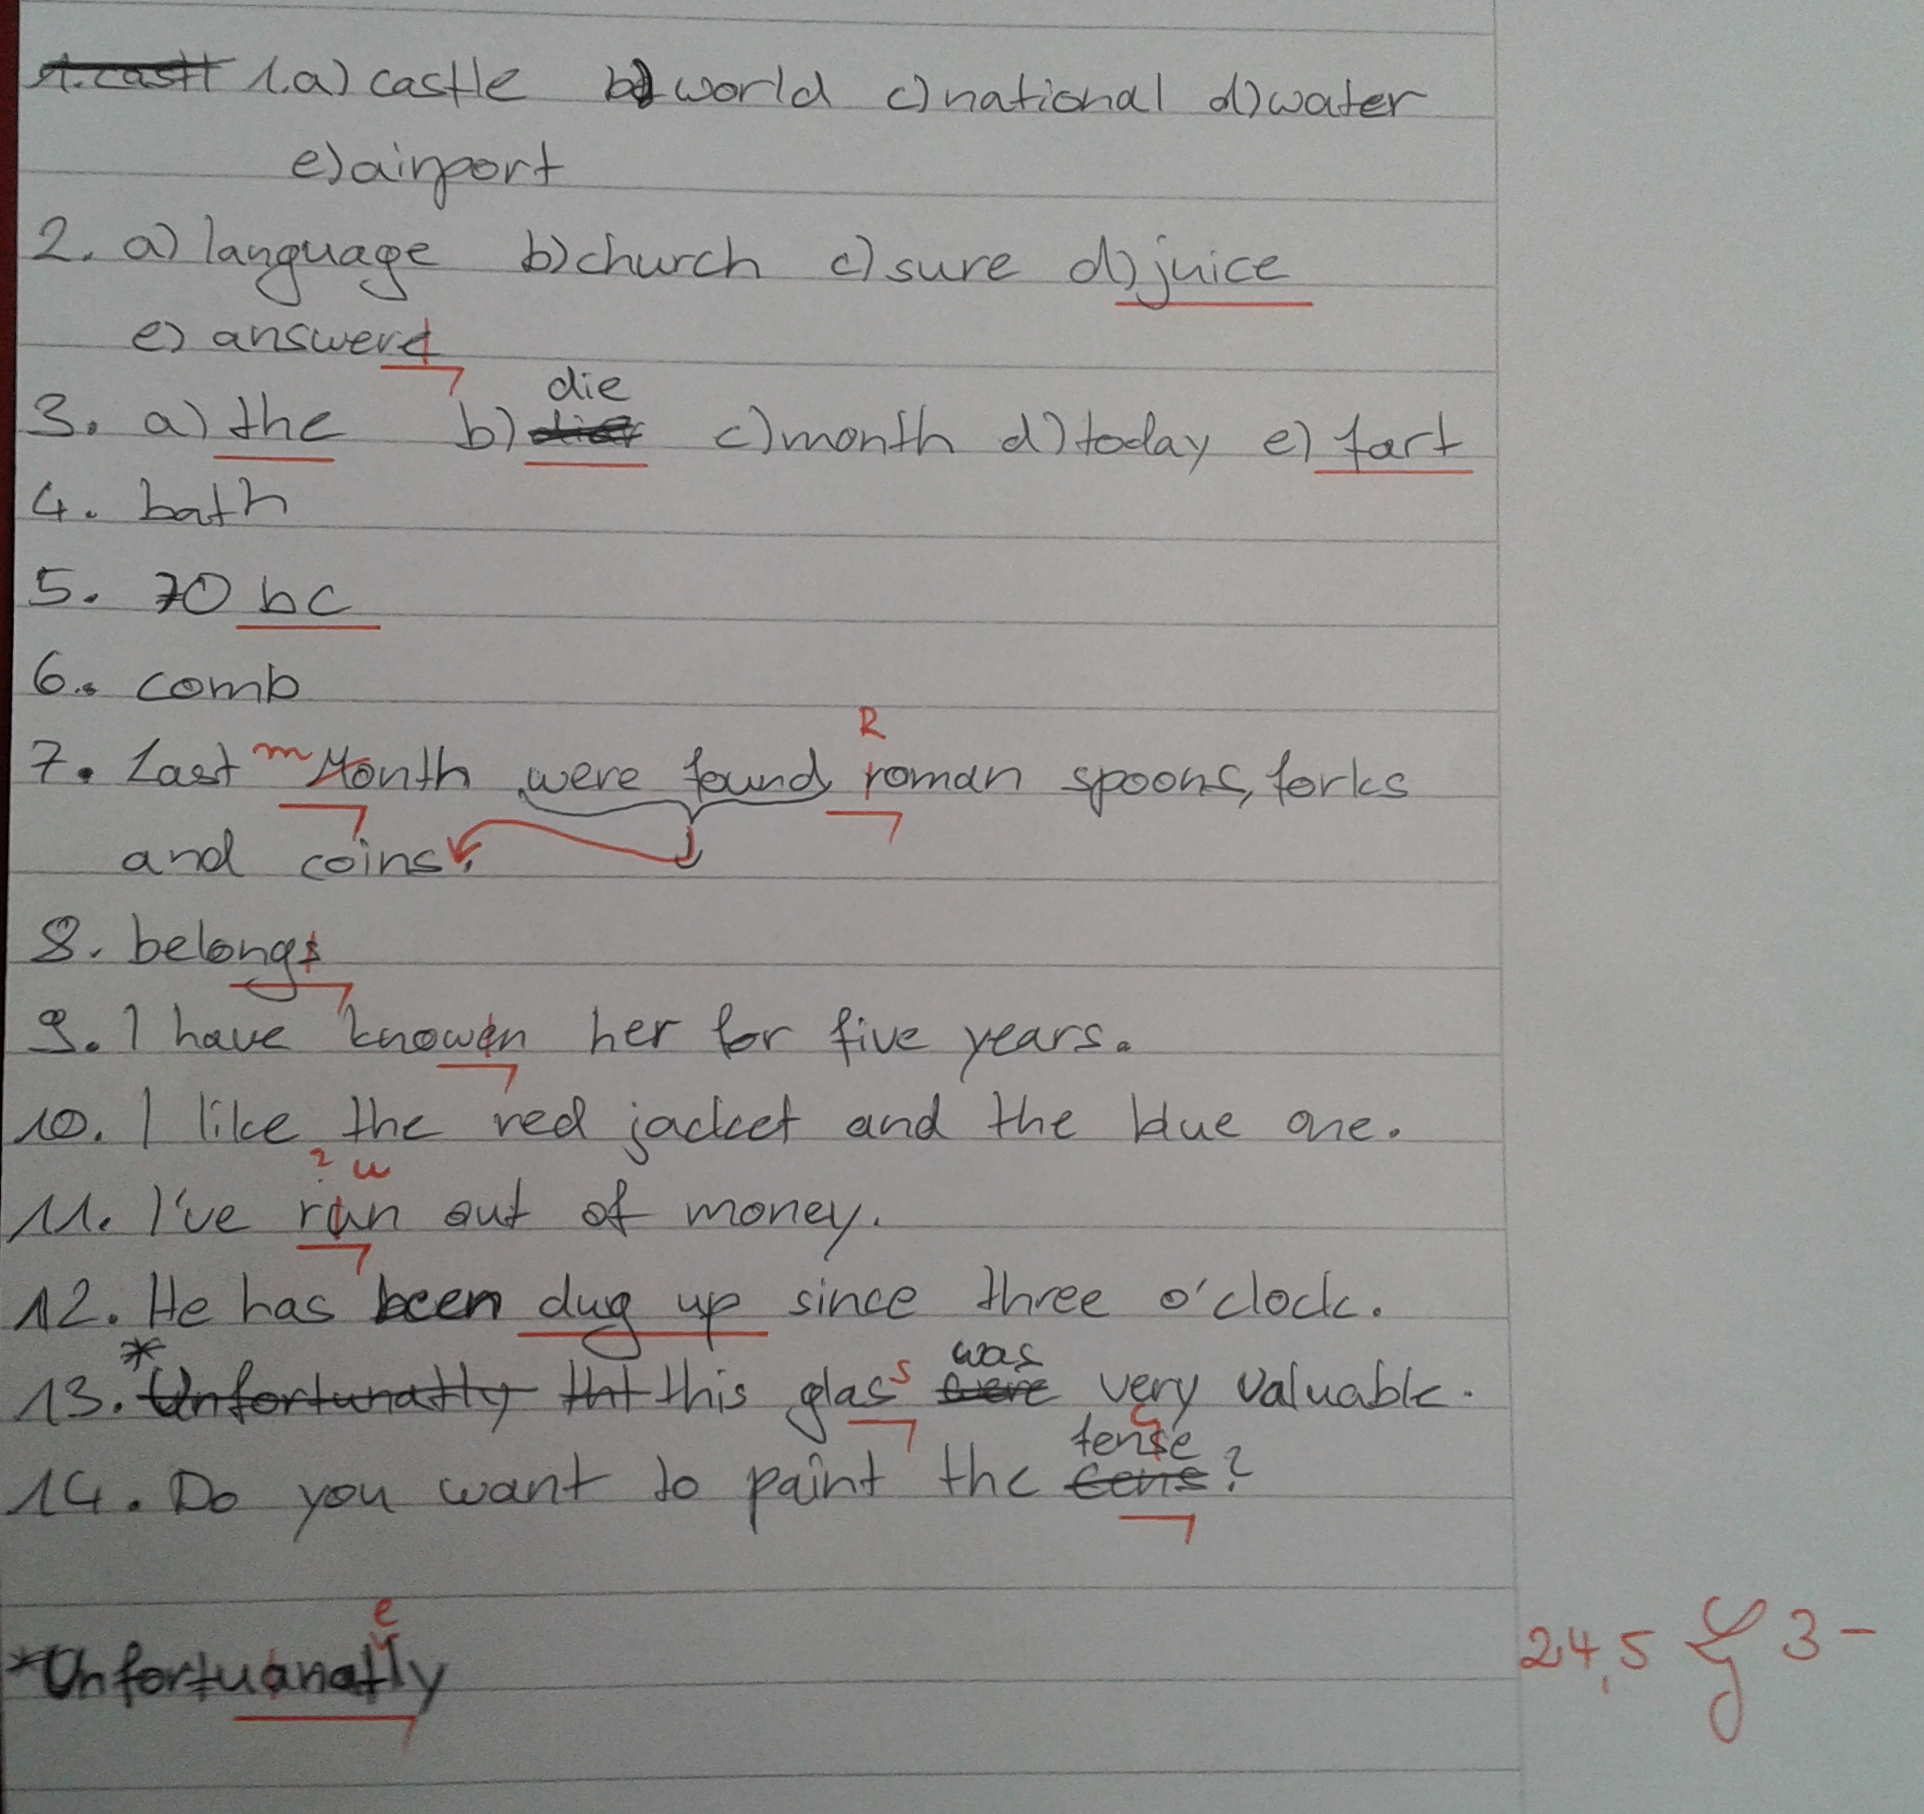 1. castl 1.a) castle b) world c) national d) water
e) airport
2. a) language b) church c) sure d) juice
e) answerd
die
3. a) the b) c) month d) today e) fart
4. bath
5. 70 bc
6. comb
R
7. Last m Month were found roman spoons, forks
and coins.
8. belongs
9. I have knowen her for five years.
10. I like the red jacket and the blue one.
? u
11. I've ran out of money.
12. He has been dug up since three o'clock.
* was
13. Unfortunatly tht this glas s were very valuable.
c
tense
14. Do you want to paint the tens?
e
*Unfortuanatly
24,5 } 3-